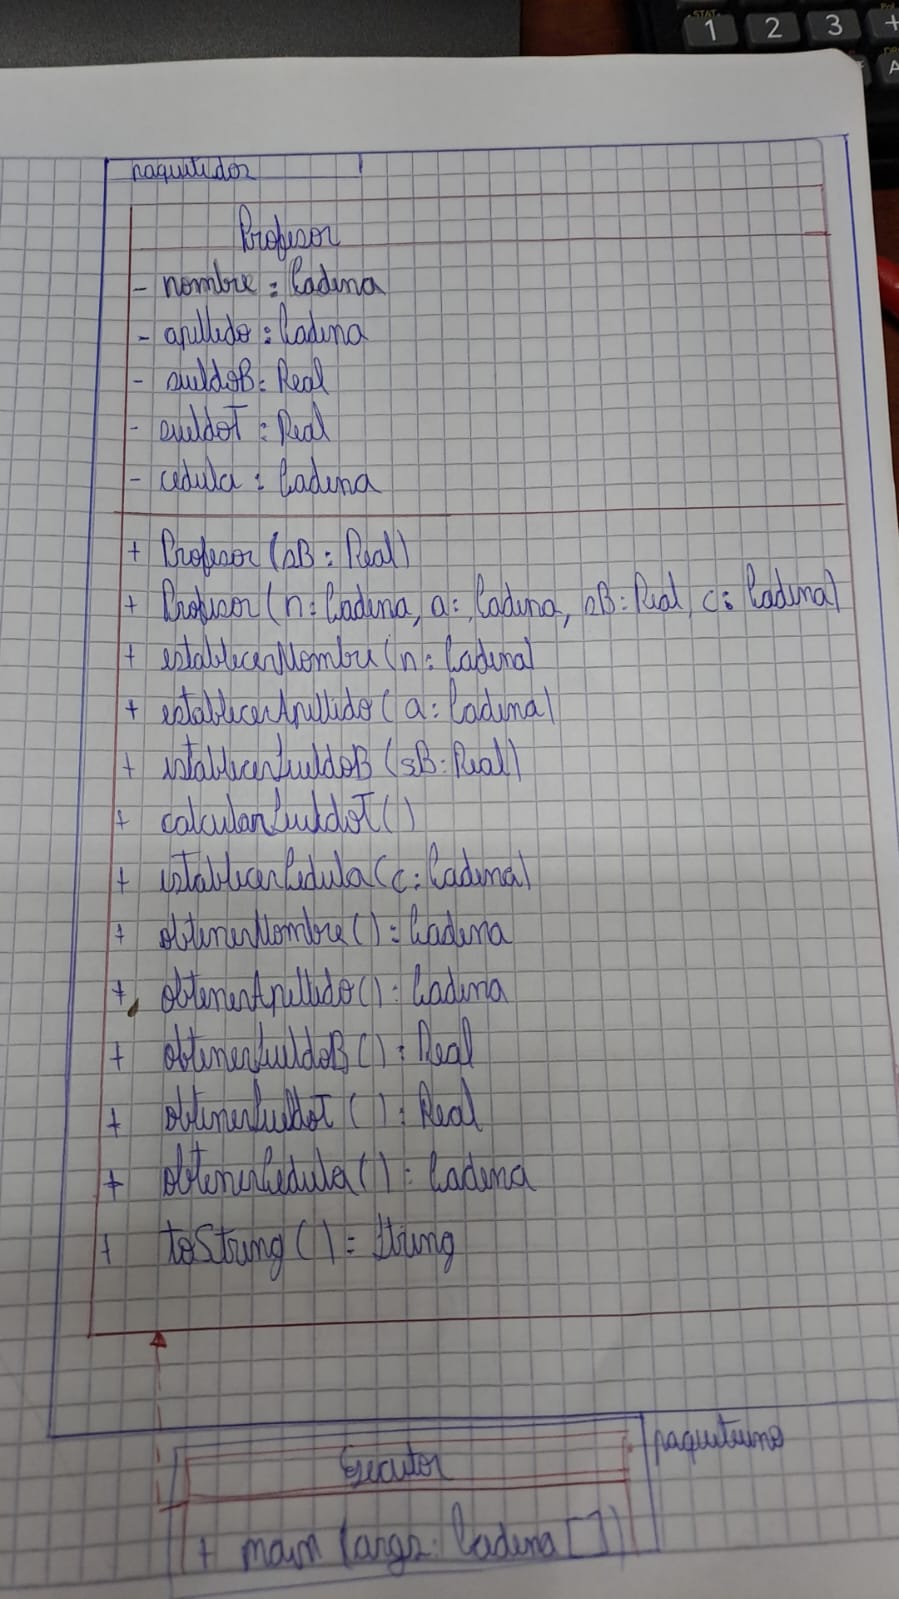 paquetedos
Profesor
- nombre : Cadena
- apellido : Cadena
- sueldoB : Real
- sueldoT : Real
- cedula : Cadena
+ Profesor (sB : Real)
+ Profesor (n : Cadena, a : Cadena, sB : Real, c : Cadena)
+ establecerNombre (n : Cadena)
+ establecerApellido (a : Cadena)
+ establecerSueldoB (sB : Real)
+ calcularSueldoT ()
+ establecerCedula (c : Cadena)
+ obtenerNombre () : Cadena
+ obtenerApellido () : Cadena
+ obtenerSueldoB () : Real
+ obtenerSueldoT () : Real
+ obtenerCedula () : Cadena
+ toString () = String
paqueteuno
Ejecutor
+ main (args : Cadena [])
STAT
1 2 3 +
A